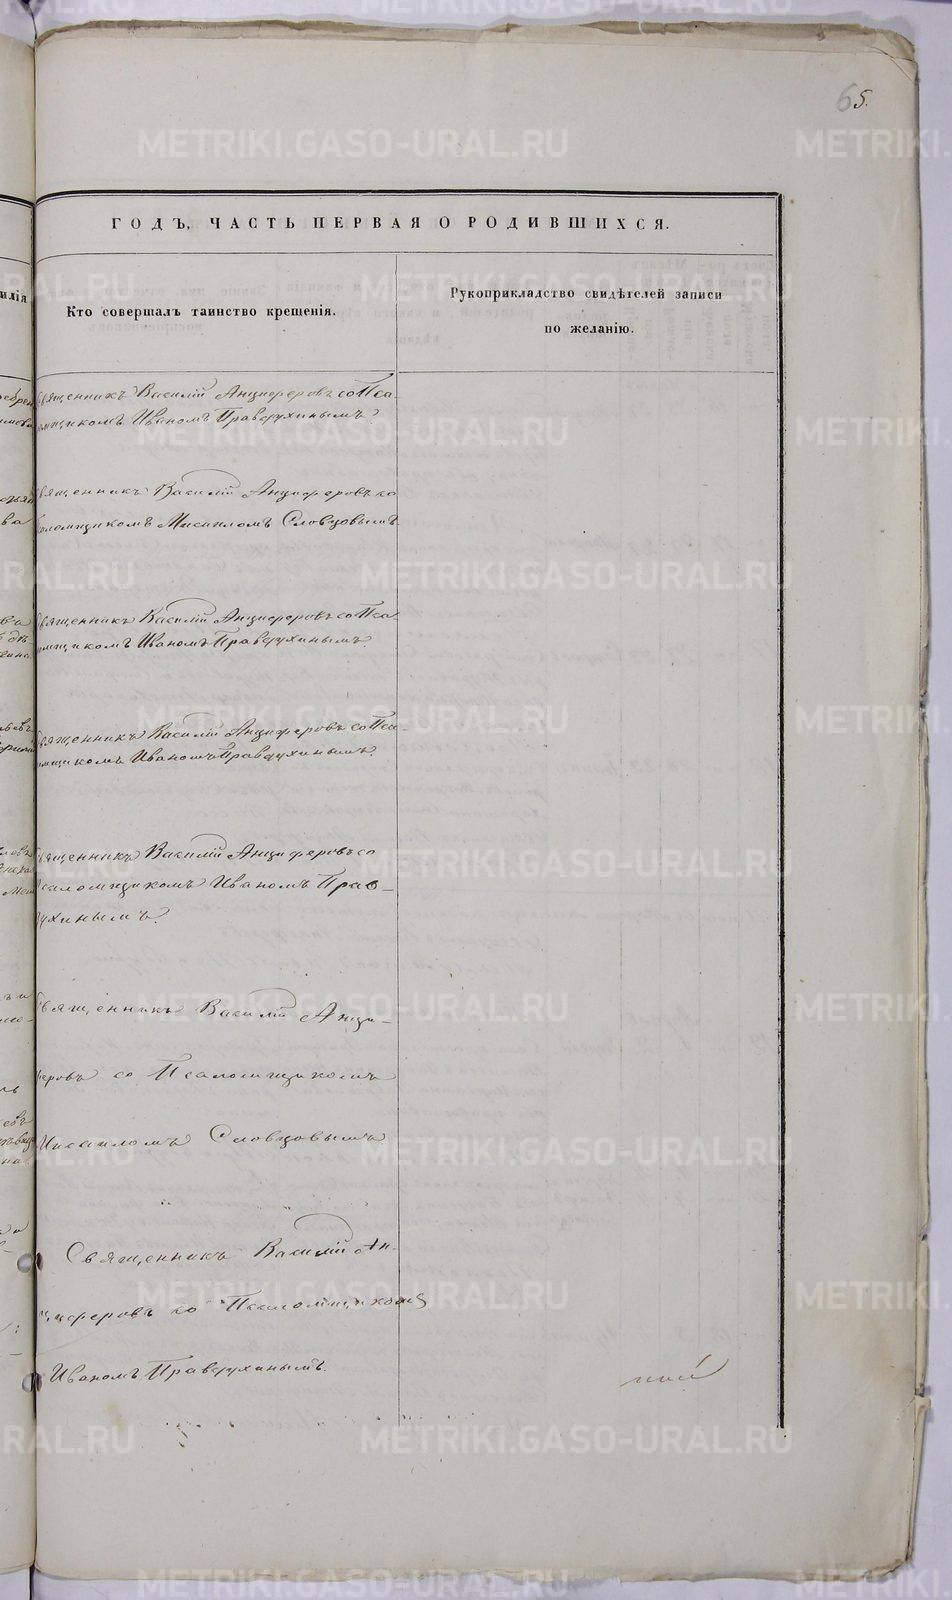 65.
ГОДЪ, ЧАСТЬ ПЕРВАЯ О РОДИВШИХСЯ.
илія
Кто совершалъ таинство крещенія.
Рукоприкладство свидѣтелей записи
по желанію.
Священникъ Василій Анциферовъ со Пса-
ломщикомъ Иваномъ Правдухинымъ.
Священникъ Василій Анциферовъ со
Псаломщикомъ Мисаиломъ Словцовымъ
Священникъ Василій Анциферовъ со Пса-
ломщикомъ Иваномъ Правдухинымъ.
Священникъ Василій Анциферовъ со Пса-
ломщикомъ Иваномъ Правдухинымъ.
Священникъ Василій Анциферовъ со
Псаломщикомъ Иваномъ Прав-
духинымъ.
Священникъ Василій Анци-
феровъ со Псаломщикомъ
Мисаиломъ Словцовымъ
Священникъ Василій Ан-
циферовъ со Псаломщикомъ
Иваномъ Правдухинымъ.
METRIKI.GASO-URAL.RU